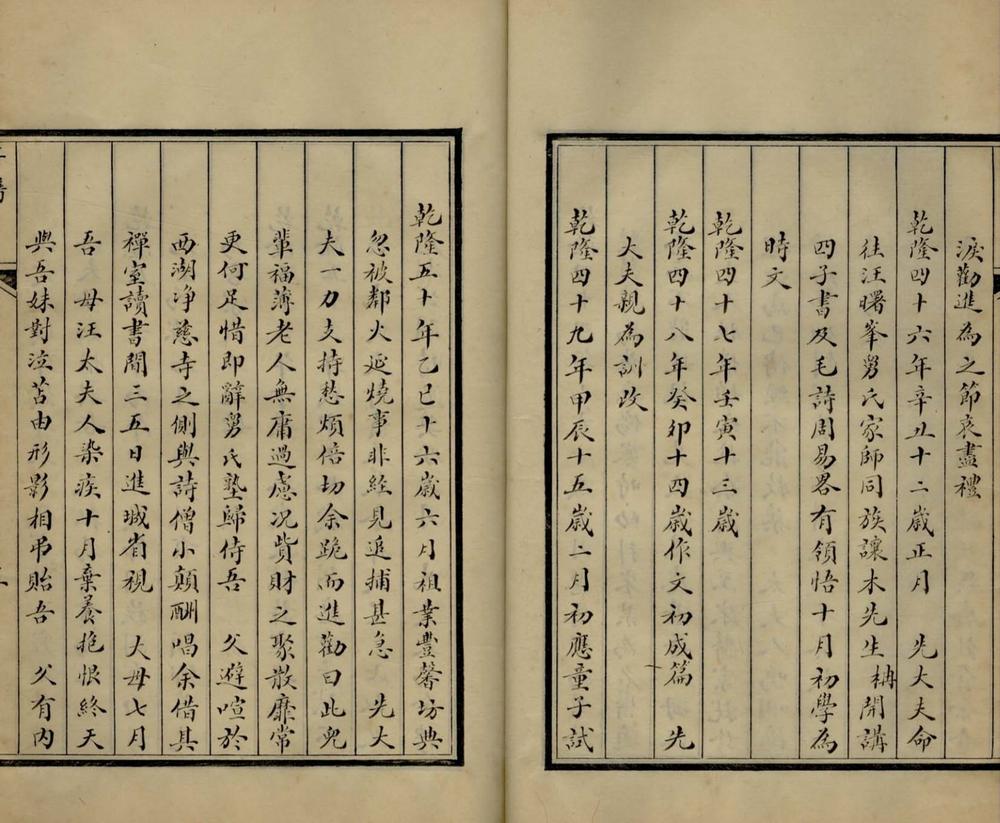 淚勸進為之節哀盡禮
乾隆四十六年辛丑十二歲正月　先大夫命
往汪曙峯舅氏家師同族讓木先生 開講
四子書及毛詩周易畧有領悟十月初學為
時文
乾隆四十七年壬寅十三歲
乾隆四十八年癸卯十四歲作文初成篇　先
大夫親為訓改
乾隆四十九年甲辰十五歲二月初應童子試
乾隆五十年乙巳十六歲六月祖業豐馨坊典
忽被鄰火延燒事非經見追捕甚急　先大
夫一力支持愁煩倍切余跪而進勸曰此兒
輩福薄老人無庸過慮况貲財之聚散靡常
更何足惜即辭舅氏塾歸侍吾　父避喧於
西湖净慈寺之側與詩僧小顛酬唱余借其
禪室讀書間三五日進城省視　大母七月
吾　母汪太夫人染疾十月棄養抱恨終天
與吾妹對泣苫由形影相弔貽吾　父有内